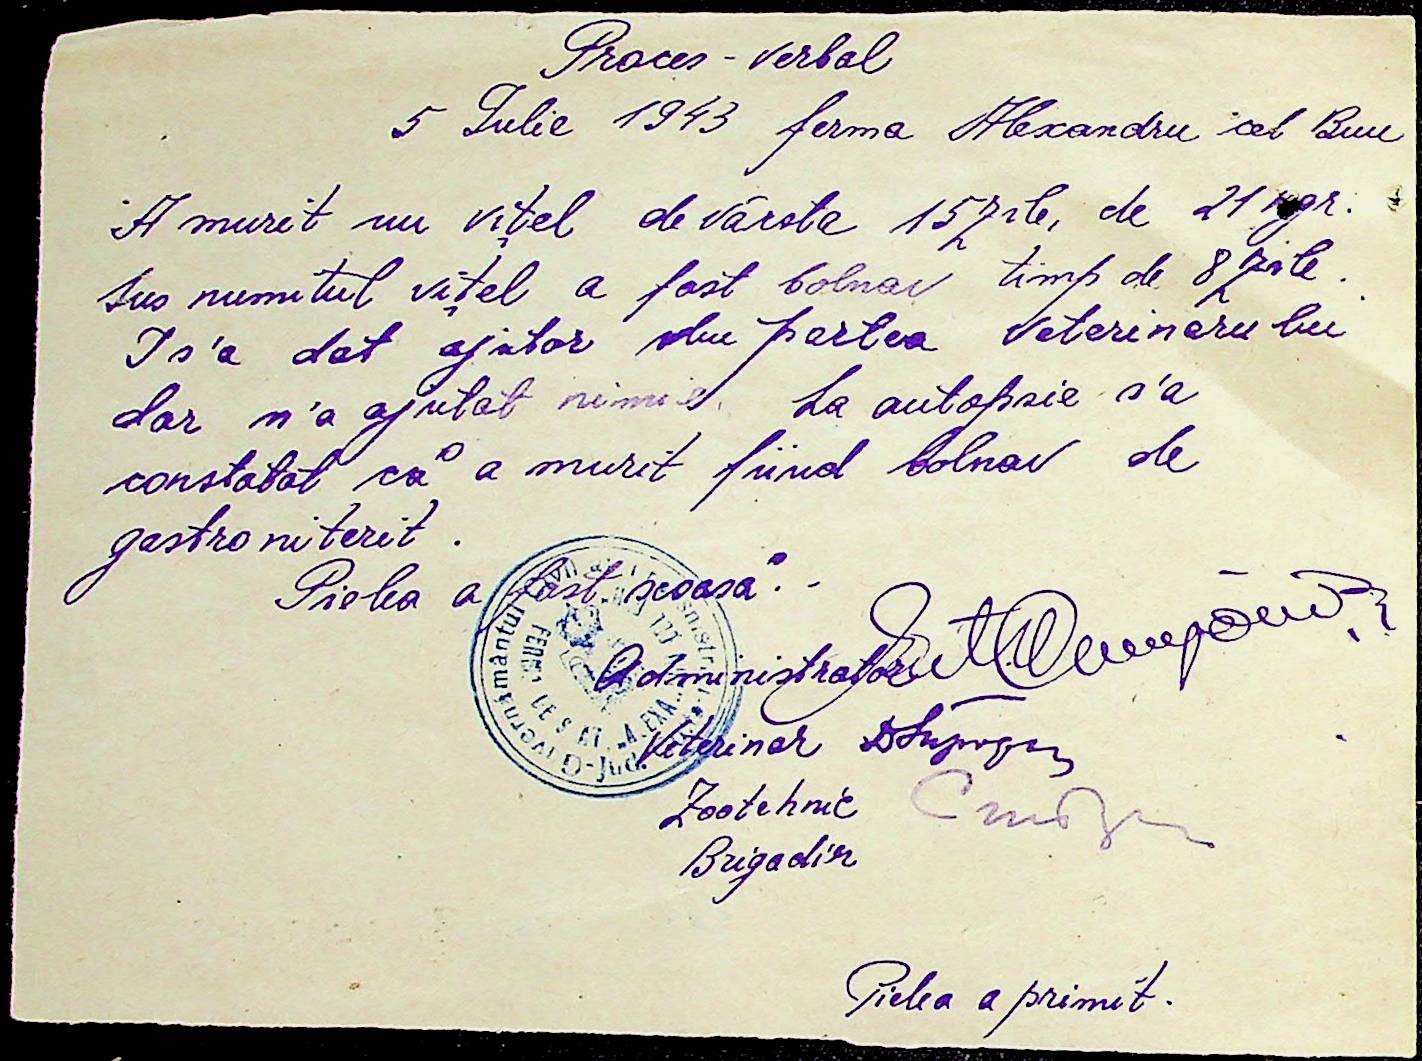 Proces-verbal
5 Iulie 1943 ferma Alexandru cel Bun
A murit un vițel de vârsta 15 zile, de 21 kgr.
Sus numitul vițel a fost bolnav timp de 8 zile.
I s'a dat ajutor din partea veterinarului
dar n'a ajutat nimic. La autopsie s'a
constatat că a murit fiind bolnav de
gastroniterit.
Pielea a fost scoasă.-
Administrator
Veterinar
Zootehnic
Brigadir
Guvernământul
FERMA DE STAT
Pielea a primit.